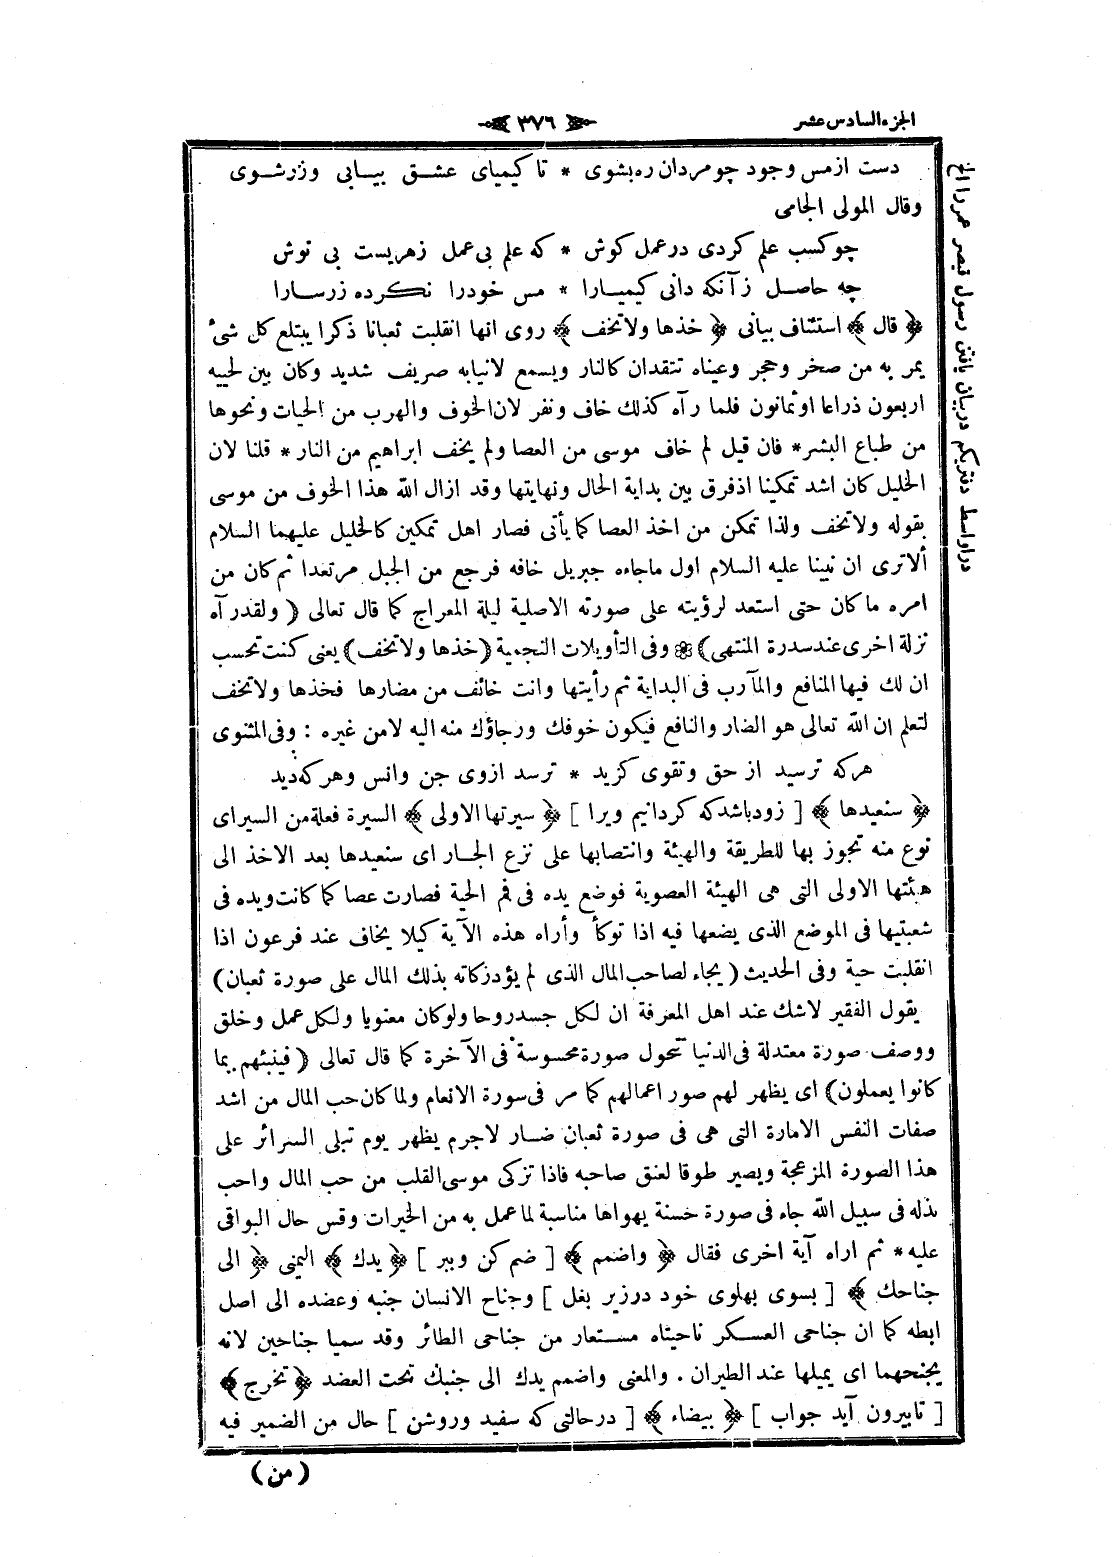 الجزء السادس عشر
﴿ ٣٧٦ ﴾
دست ازمس وجود چو مردان ره بشوی * تا کیمیای عشق بیابی وزر شوی
وقال المولى الجامى
چو کسب علم کردی در عمل کوش * که علم بی عمل زهریست بی نوش
چه حاصل ز آنکه دانی کیمیارا * مس خودرا نکرده زر سارا
﴿ قال ﴾ استئناف بيانى ﴿ خذها ولاتخف ﴾ روى انها انقلبت ثعبانا ذكرا يبتلع كل شئ
يمر به من صخر وحجر وعيناه تتقدان كالنار ويسمع لانيابه صريف شديد وكان بين لحييه
اربعون ذراعا او ثمانون فلما رآه كذلك خاف ونفر لان الخوف والهرب من الحيات ونحوها
من طباع البشر * فان قيل لم خاف موسى من العصا ولم يخف ابراهيم من النار * قلنا لان
الخليل كان اشد تمكينا اذ فرق بين بداية الحال ونهايتها وقد ازال الله هذا الخوف من موسى
بقوله ولاتخف ولذا تمكن من اخذ العصا كما يأتى فصار اهل تمكين كالخليل عليهما السلام
ألا ترى ان نبينا عليه السلام اول ماجاءه جبريل خافه فرجع من الجبل مرتعدا ثم كان من
امره ما كان حتى استعد لرؤيته على صورته الاصلية ليلة المعراج كما قال تعالى ( ولقد رآه
نزلة اخرى عند سدرة المنتهى ) وفى التأويلات النجمية ( خذها ولاتخف ) يعنى كنت تحسب
ان لك فيها المنافع والمآرب فى البداية ثم رأيتها وانت خائف من مضارها فخذها ولاتخف
لتعلم ان الله تعالى هو الضار والنافع فيكون خوفك ورجاؤك منه اليه لامن غيره : وفى المثنوى
هرکه ترسید از حق وتقوی کزید * ترسد ازوی جن وانس وهر که دید
﴿ سنعيدها ﴾ [ زود باشد که کردانیم ویرا ] ﴿ سيرتها الاولى ﴾ السيرة فعلة من السير اى
نوع منه تجوز بها للطريقة والهيئة وانتصابها على نزع الجار اى سنعيدها بعد الاخذ الى
هيئتها الاولى التى هى الهيئة العصوية فوضع يده فى فم الحية فصارت عصا كما كانت ويده فى
شعبتيها فى الموضع الذى يضعها فيه اذا توكأ وأراه هذه الآية كيلا يخاف عند فرعون اذا
انقلبت حية وفى الحديث ( يجاء لصاحب المال الذى لم يؤد زكاته بذلك المال على صورة ثعبان )
يقول الفقير لاشك عند اهل المعرفة ان لكل جسد روحا ولو كان معنويا ولكل عمل وخلق
ووصف صورة معتدلة فى الدنيا تتحول صورة محسوسة فى الآخرة كما قال تعالى ( فينبئهم بما
كانوا يعملون ) اى يظهر لهم صور اعمالهم كما مر فى سورة الانعام ولما كان حب المال من اشد
صفات النفس الامارة التى هى فى صورة ثعبان ضار لاجرم يظهر يوم تبلى السرائر على
هذا الصورة المزعجة ويصير طوقا لعنق صاحبه فاذا تزكى موسى القلب من حب المال واحب
بذله فى سبيل الله جاء فى صورة حسنة يهواها مناسبة لما عمل به من الخيرات وقس حال البواقى
عليه * ثم اراه آية اخرى فقال ﴿ واضمم ﴾ [ ضم کن وببر ] ﴿ يدك ﴾ اليمنى ﴿ الى
جناحك ﴾ [ بسوى پهلوى خود درزير بغل ] وجناح الانسان جنبه وعضده الى اصل
ابطه كما ان جناحى العسكر ناحيتاه مستعار من جناحى الطائر وقد سميا جناحين لانه
يجنحهما اى يميلها عند الطيران . والمعنى واضمم يدك الى جنبك تحت العضد ﴿ تخرج ﴾
[ تا بيرون آيد جواب ] ﴿ بيضاء ﴾ [ در حالتى كه سفيد وروشن ] حال من الضمير فيه
( من )
در اواسط دفتر یکم دربیان یافتن رسول قیصر عمر را الخ